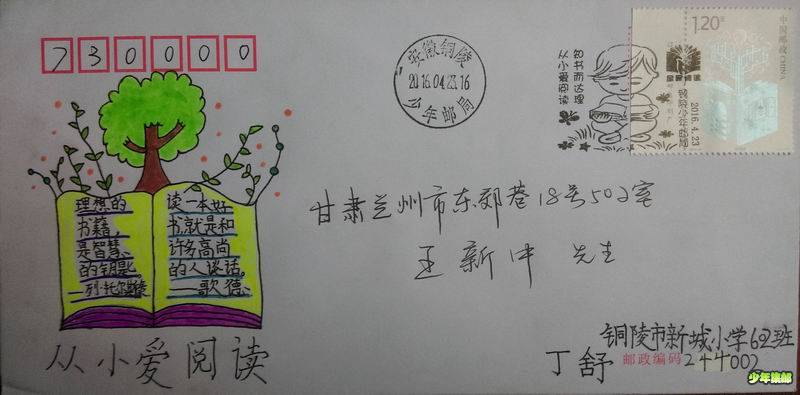 730000
安徽铜陵
2016.04.23.16
少年邮局
知书而达理
从小爱阅读
1.20元
中国邮政 CHINA
全民阅读
铜陵少年邮局
2016.4.23
理想的
书籍，
是智慧、
的钥匙。
—列·托尔斯泰
读一本好
书，就是和
许多高尚
的人谈话。
——歌德、
从小爱阅读
甘肃兰州市东郊巷18号502室
王新中 先生
铜陵市新城小学62班
丁舒
邮政编码 244002
少年集邮